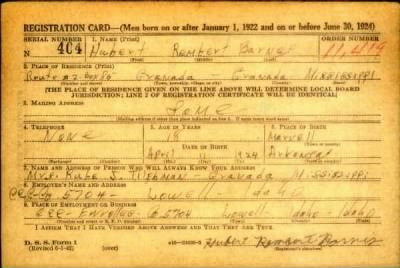 REGISTRATION CARD—(Men born on or after January 1, 1922 and on or before June 30, 1924)
SERIAL NUMBER 1. NAME (Print) ORDER NUMBER
404 Hubert Rembert Barnes 11,419
(First) (Middle) (Last)
2. PLACE OF RESIDENCE (Print)
Route #2-Box 86 Grenada - Grenada Mississippi
[THE PLACE OF RESIDENCE GIVEN ON THE LINE ABOVE WILL DETERMINE LOCAL BOARD
JURISDICTION; LINE 2 OF REGISTRATION CERTIFICATE WILL BE IDENTICAL]
3. MAILING ADDRESS
Same
[Mailing address if other than place indicated on line 2. If same insert word same]
4. TELEPHONE 5. AGE IN YEARS 6. PLACE OF BIRTH
None 18 Marvell
DATE OF BIRTH
April 11 1924 Arkansas
7. NAME AND ADDRESS OF PERSON WHO WILL ALWAYS KNOW YOUR ADDRESS
Mrs. Mable S. Grenada Mississippi
8. EMPLOYER'S NAME AND ADDRESS
5704- Lowell Idaho
9. PLACE OF EMPLOYMENT OR BUSINESS
CCC- Enrollee Co 5704 Lowell Idaho Idaho
I AFFIRM THAT I HAVE VERIFIED ABOVE ANSWERS AND THAT THEY ARE TRUE.
D. S. S. Form 1
(Revised 6-1-42) (over) Hubert Rembert Barnes